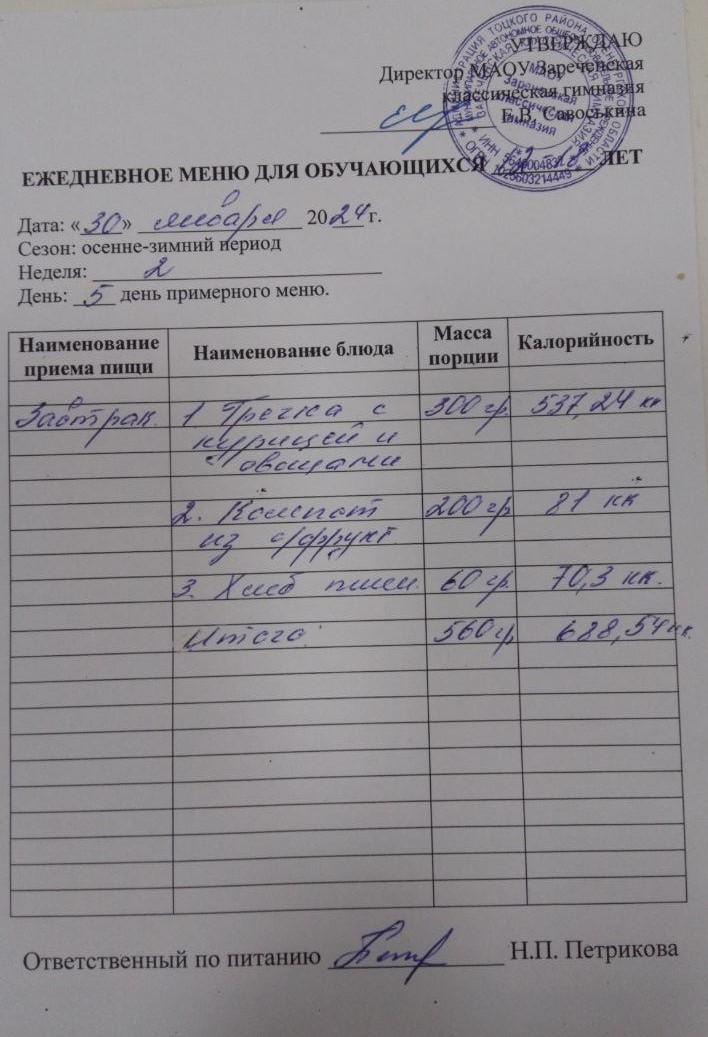 УТВЕРЖДАЮ
Директор МАОУ Зареченская
классическая гимназия
Е.В. Савоськина
МАОУ
Зареченская
классическая
гимназия
ЕЖЕДНЕВНОЕ МЕНЮ ДЛЯ ОБУЧАЮЩИХСЯ 12-18 ЛЕТ
Дата: «30» января 2024 г.
Сезон: осенне-зимний период
Неделя: 2
День: 5 день примерного меню.
Наименование приема пищи Наименование блюда Масса порции Калорийность
Завтрак 1 Гречка с 300 гр. 537,24 кк
курицей и
овощами
2. Компот 200 гр 81 кк
из с/фрукт
3. Хлеб пшен. 60 гр. 70,3 кк.
Итого: 560 гр 688,54 кк.
Ответственный по питанию Н.П. Петрикова